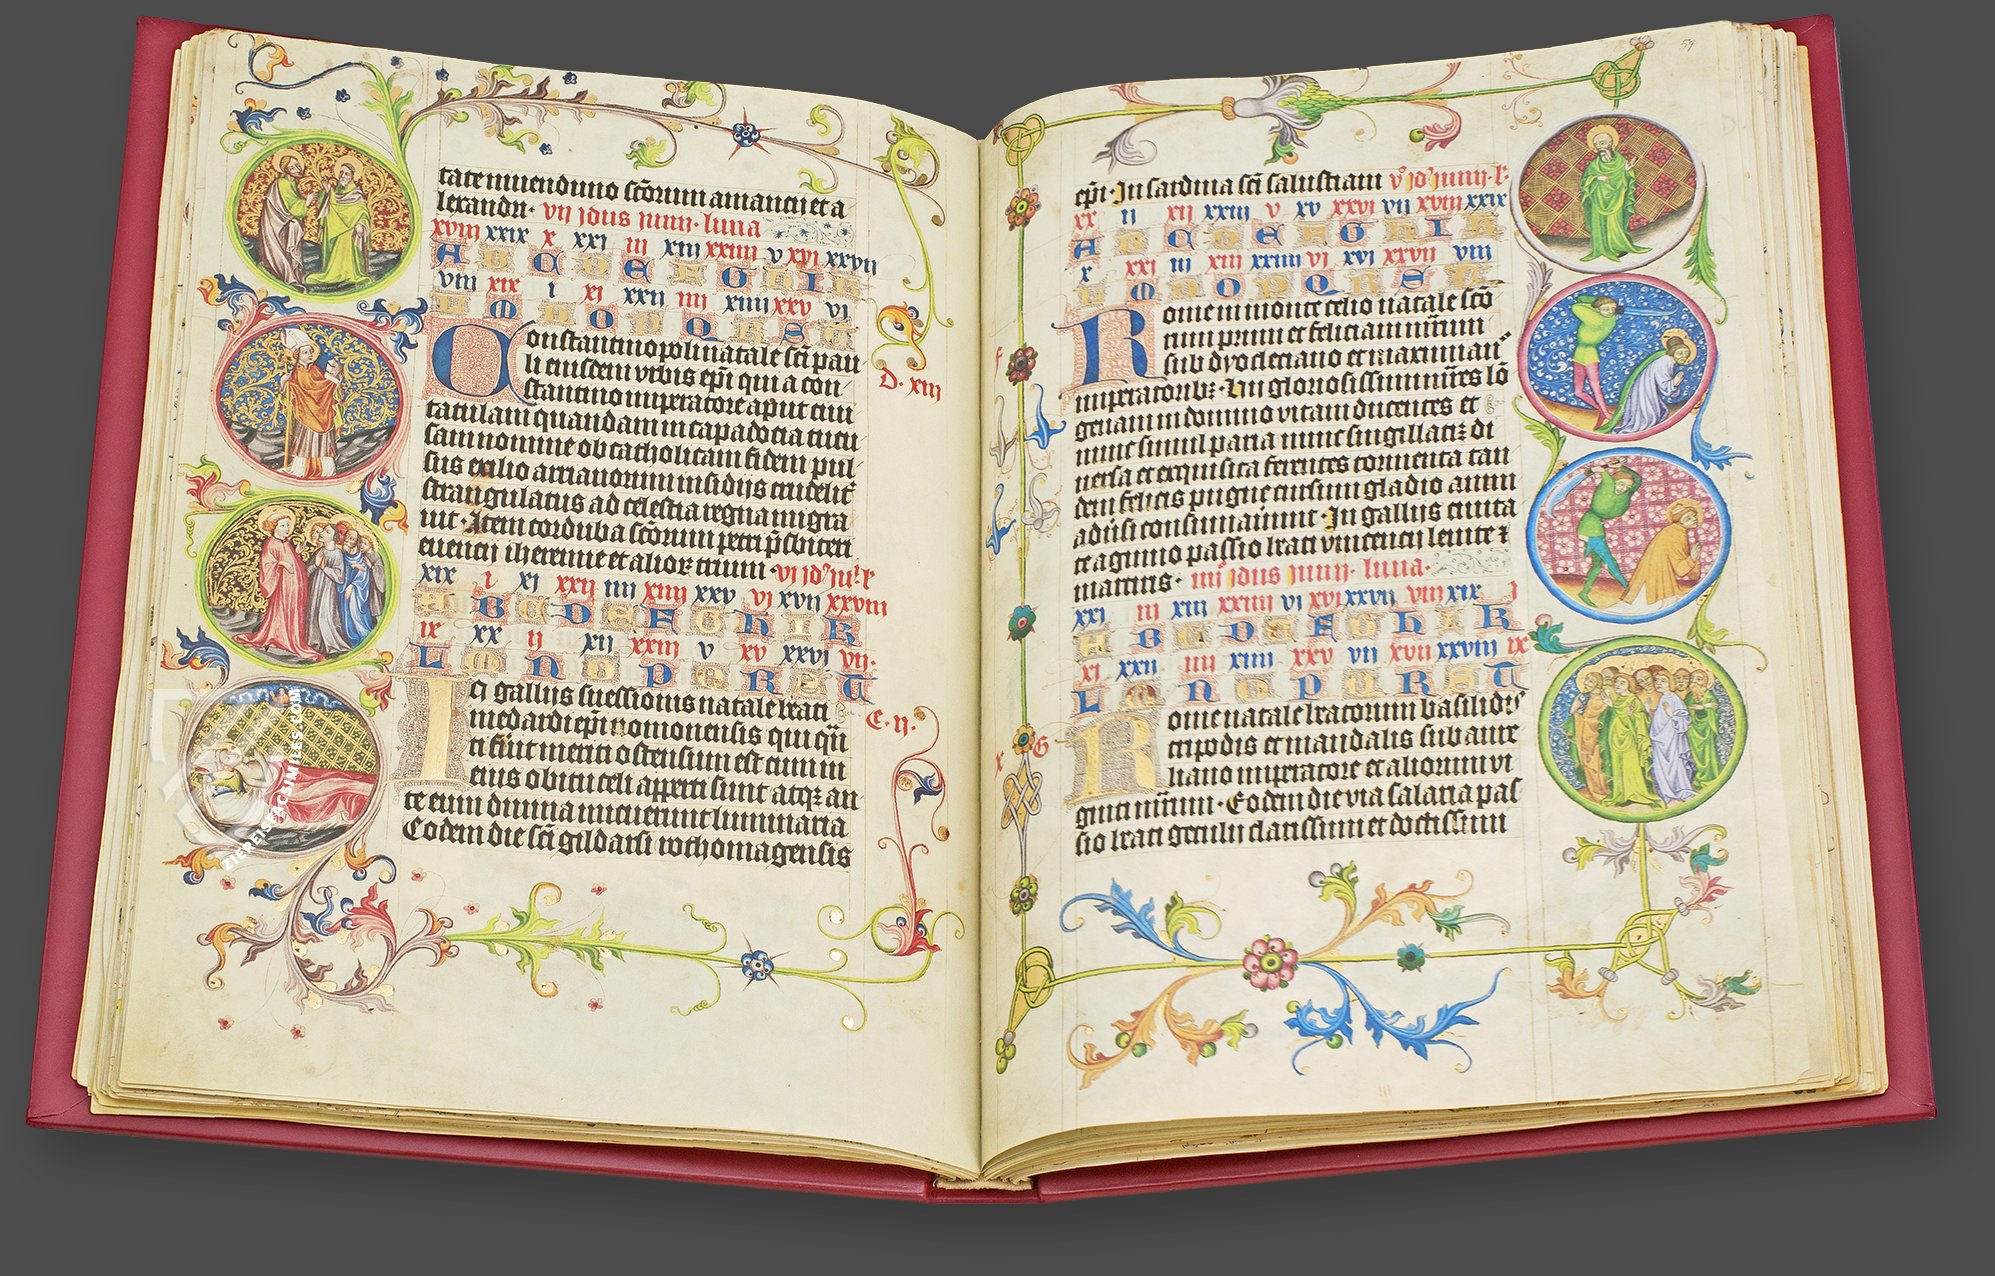 tate niuenduno scõrum amancij et a
lexandri · vij jdus junij · luna
xviij xxix x xxi iij xiij xxiiij v xvi xxvij
A B C D E F G H I K
viij xix i xi xxij iiij xiiij xxv vi
L M N O P Q R S T
Constantinopoli natale sci pau
li eiusdem vrbis epi qui a con
stantino imperatore aput ciui
tatulam quandam in capadocia cucu
sam nomine ob catholicam fidem pul
sus exilio arrianorum insidijs crudelit
strangulatus ad celestia regna migra
uit · Item corduba scõrum petri pšbiteri
euencij iheremie et alioꝝ trium · vi jdꝰ juł ł
xix i xi xxij iiij xiiij xxv vi xvij xxviij
A B C D E F G H I K
ix xx ij xij xxiij v xv xxvi vij ·
L M N O P Q R S T
In gallijs suessionis natale beati
medardi epi nomonensis qui qñ
ti fũit meriti ostensum est cum in
eius obitu celi apperti sunt atqꝫ an
te eum diuina micuerunt luminaria
Eodem die sci gildardi rothomagensis
D · xiij
E · ij ·
59
epi · In sardina sci salustiani v jdꝰ junij · ł ·
xx ij xij xxiij v xv xxvi vij xviij xxix
A B C D E F G H I K
x xxi iij xiij xxiiij vi xvi xxvij viij
L M N O P Q R S T
Rome in monte celio natale scõ
rum primi et feliciani mr̃um
sub dyocleciano et maximiano
imperatoribꝫ · Hij gloriosissimi mr̃es lõ
geuam in domino vitam ducentes et
nunc simul paria nunc singillatiꝫ di
uersa et exquisita ferentes tormenta tan
dem felicis pugne cursum gladio animi
aduersi consumauerunt · In gallijs ciuita
te aginno passio beati vincencij leuite ꝛ
martiris · iiij jdus junij · luna ·
xxi iij xiij xxiiij vi xvi xxvij viij xix i
A B C D E F G H I K
xi xxij iiij xiiij xxv vij xvij xxviij ix
L M N O P Q R S T
Rome natale beatorum basilidis
tripodis et mandalis sub aure
liano imperatore et aliorum vi
ginti mr̃um · Eodem die via salaria pas
sio beati getulij clarissimi et doctissimi
F
G
x
ZIEREIS FACSIMILES.COM